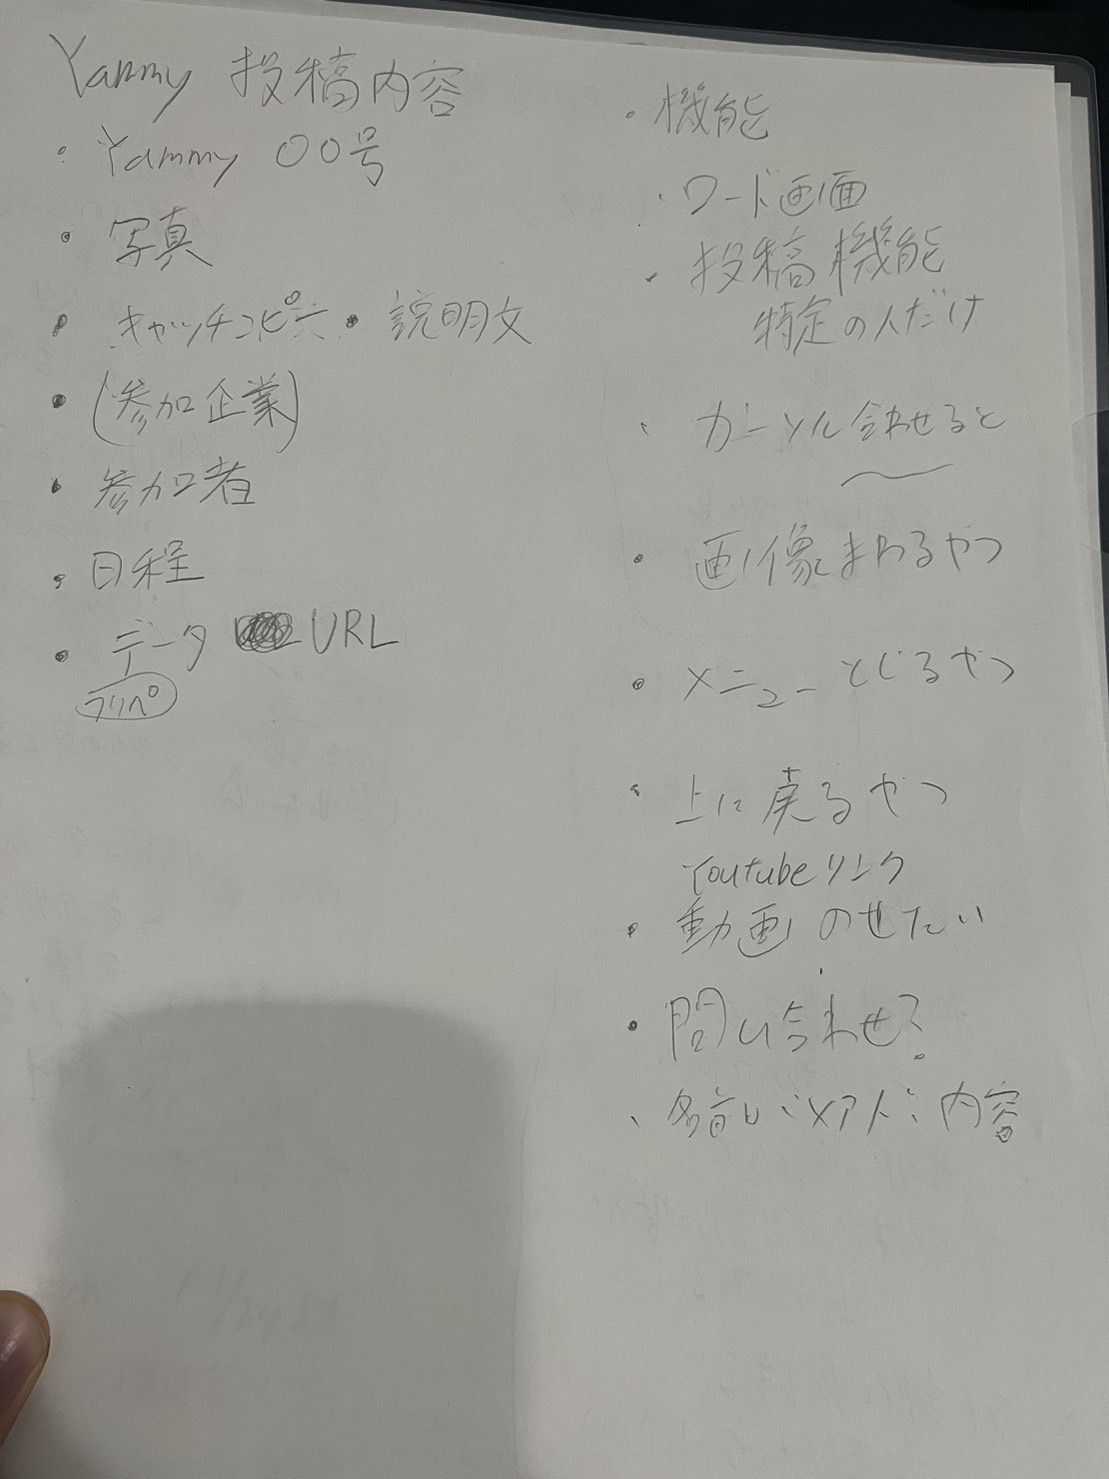 Yammy 投稿内容
・ Yammy 〇〇号
・ 写真
・ キャッチコピー・説明文
・ (参加企業)
・ 参加者
・ 日程
・ データ URL
フリペ
・ 機能
・ ワード画面
・ 投稿機能
特定の人だけ
・ カーソル合わせると
・ 画像まわるやつ
・ メニューとじるやつ
・ 上に戻るやつ
Youtubeリンク
・ 動画のせたい
・ 問い合わせ?
・ 名前 メアド 内容